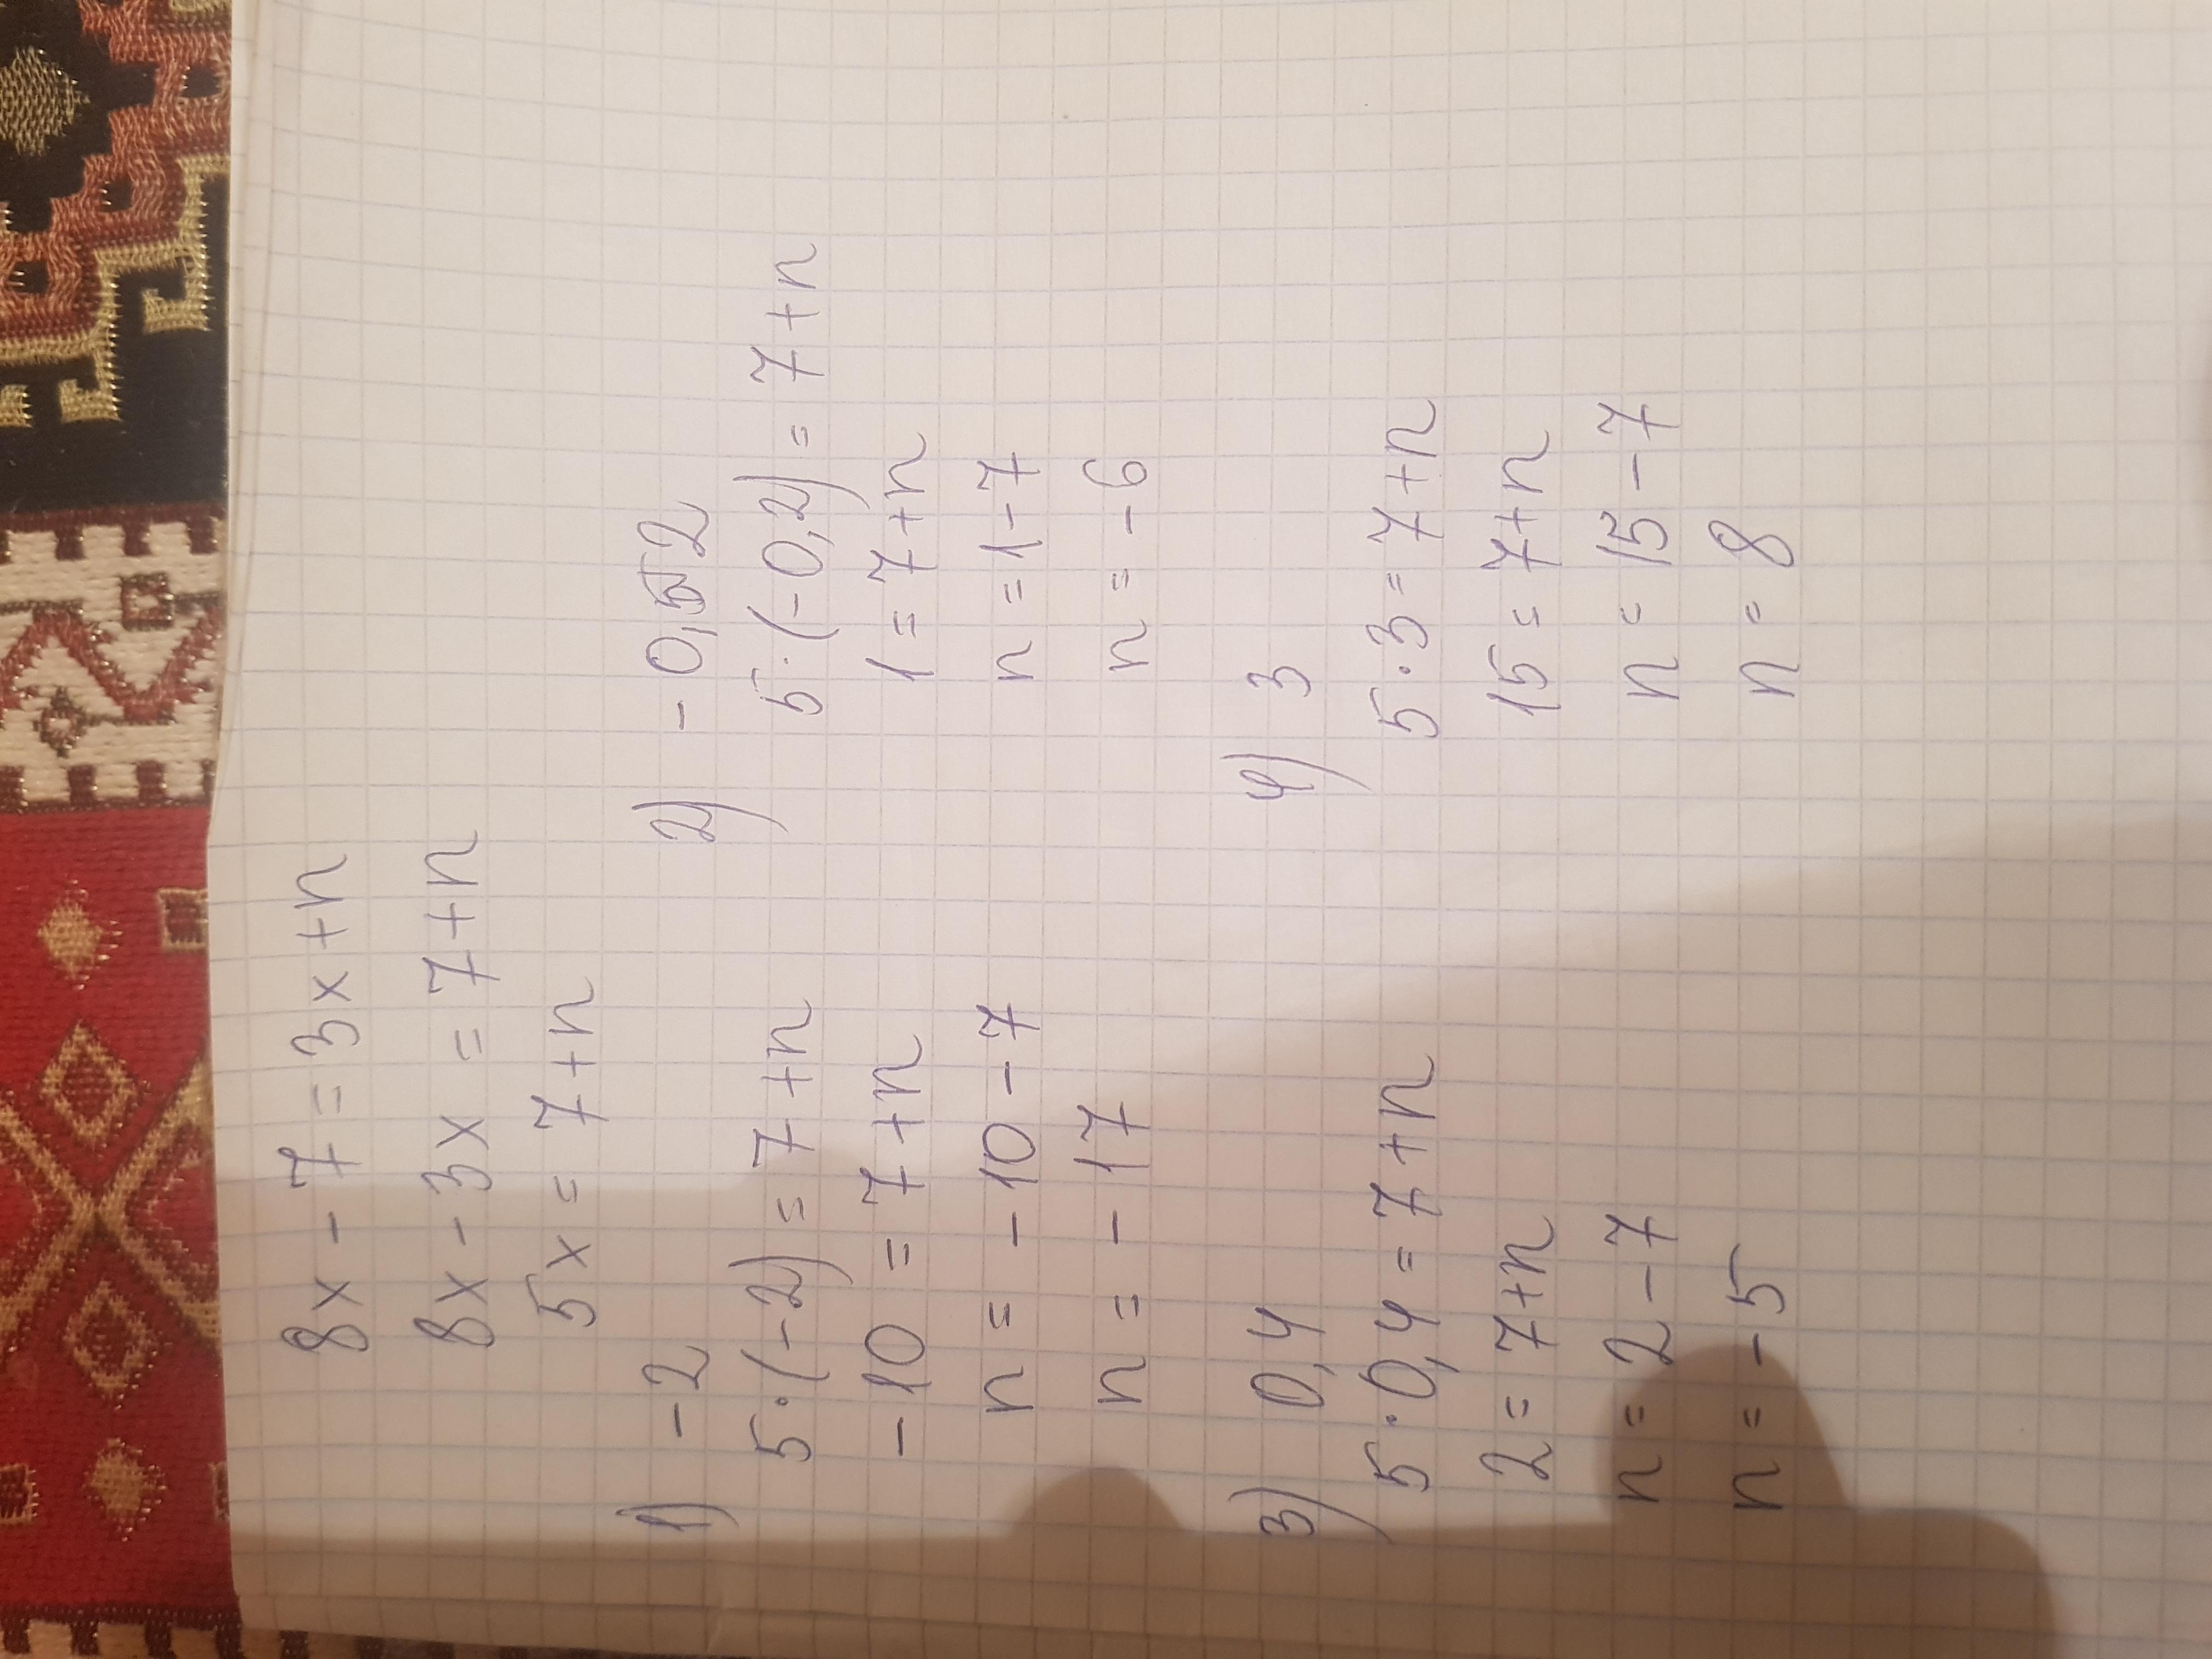 8x - 7 = 3x + n
8x - 3x = 7 + n
5x = 7 + n
1) -2
5·(-2) = 7 + n
-10 = 7 + n
n = -10 - 7
n = -17
2) -0,2
5·(-0,2) = 7 + n
1 = 7 + n
n = 1 - 7
n = -6
3) 0,4
5·0,4 = 7 + n
2 = 7 + n
n = 2 - 7
n = -5
4) 3
5·3 = 7 + n
15 = 7 + n
n = 15 - 7
n = 8